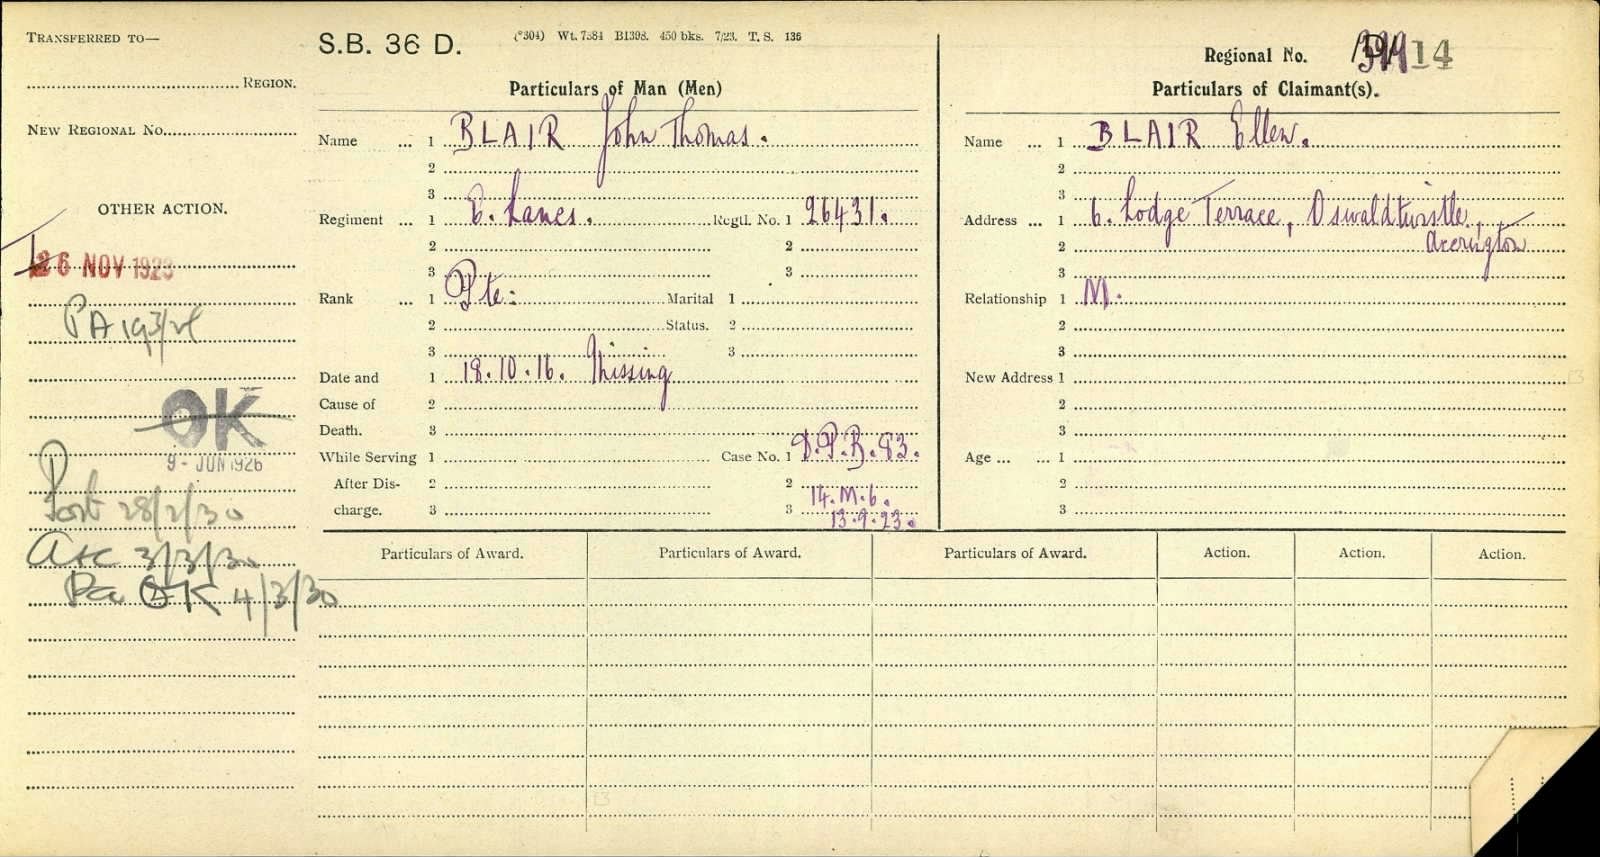 TRANSFERRED TO—
REGION.
NEW REGIONAL No.
OTHER ACTION.
26 NOV 1923
PA 193/26
OK
9 - JUN 1926
Port 28/2/30
3/3/30
Pa OK 4/3/30
S.B. 36 D.
(*304) Wt. 7384 B1398. 450 bks. 7/23. T. S. 136
Particulars of Man (Men)
Name ... 1 BLAIR John Thomas.
2
3
Regiment ... 1 E. Lancs. Regtl. No. 1 26431.
2 2
3 3
Rank ... 1 Pte: Marital 1
2 Status. 2
3 3
Date and 1 18.10.16. Missing
Cause of 2
Death. 3
While Serving 1 Case No. 1 D.P.B. 93.
After Dis- 2 2 14.M.6.
charge. 3 3 13.9.23.
Regional No. 14
Particulars of Claimant(s).
Name ... 1 BLAIR Ellen.
2
3
Address ... 1 6. Lodge Terrace, Oswaldtwistle,
2 Accrington
3
Relationship 1 M.
2
3
New Address 1
2
3
Age ... ... 1
2
3
Particulars of Award. Particulars of Award. Particulars of Award. Action. Action. Action.